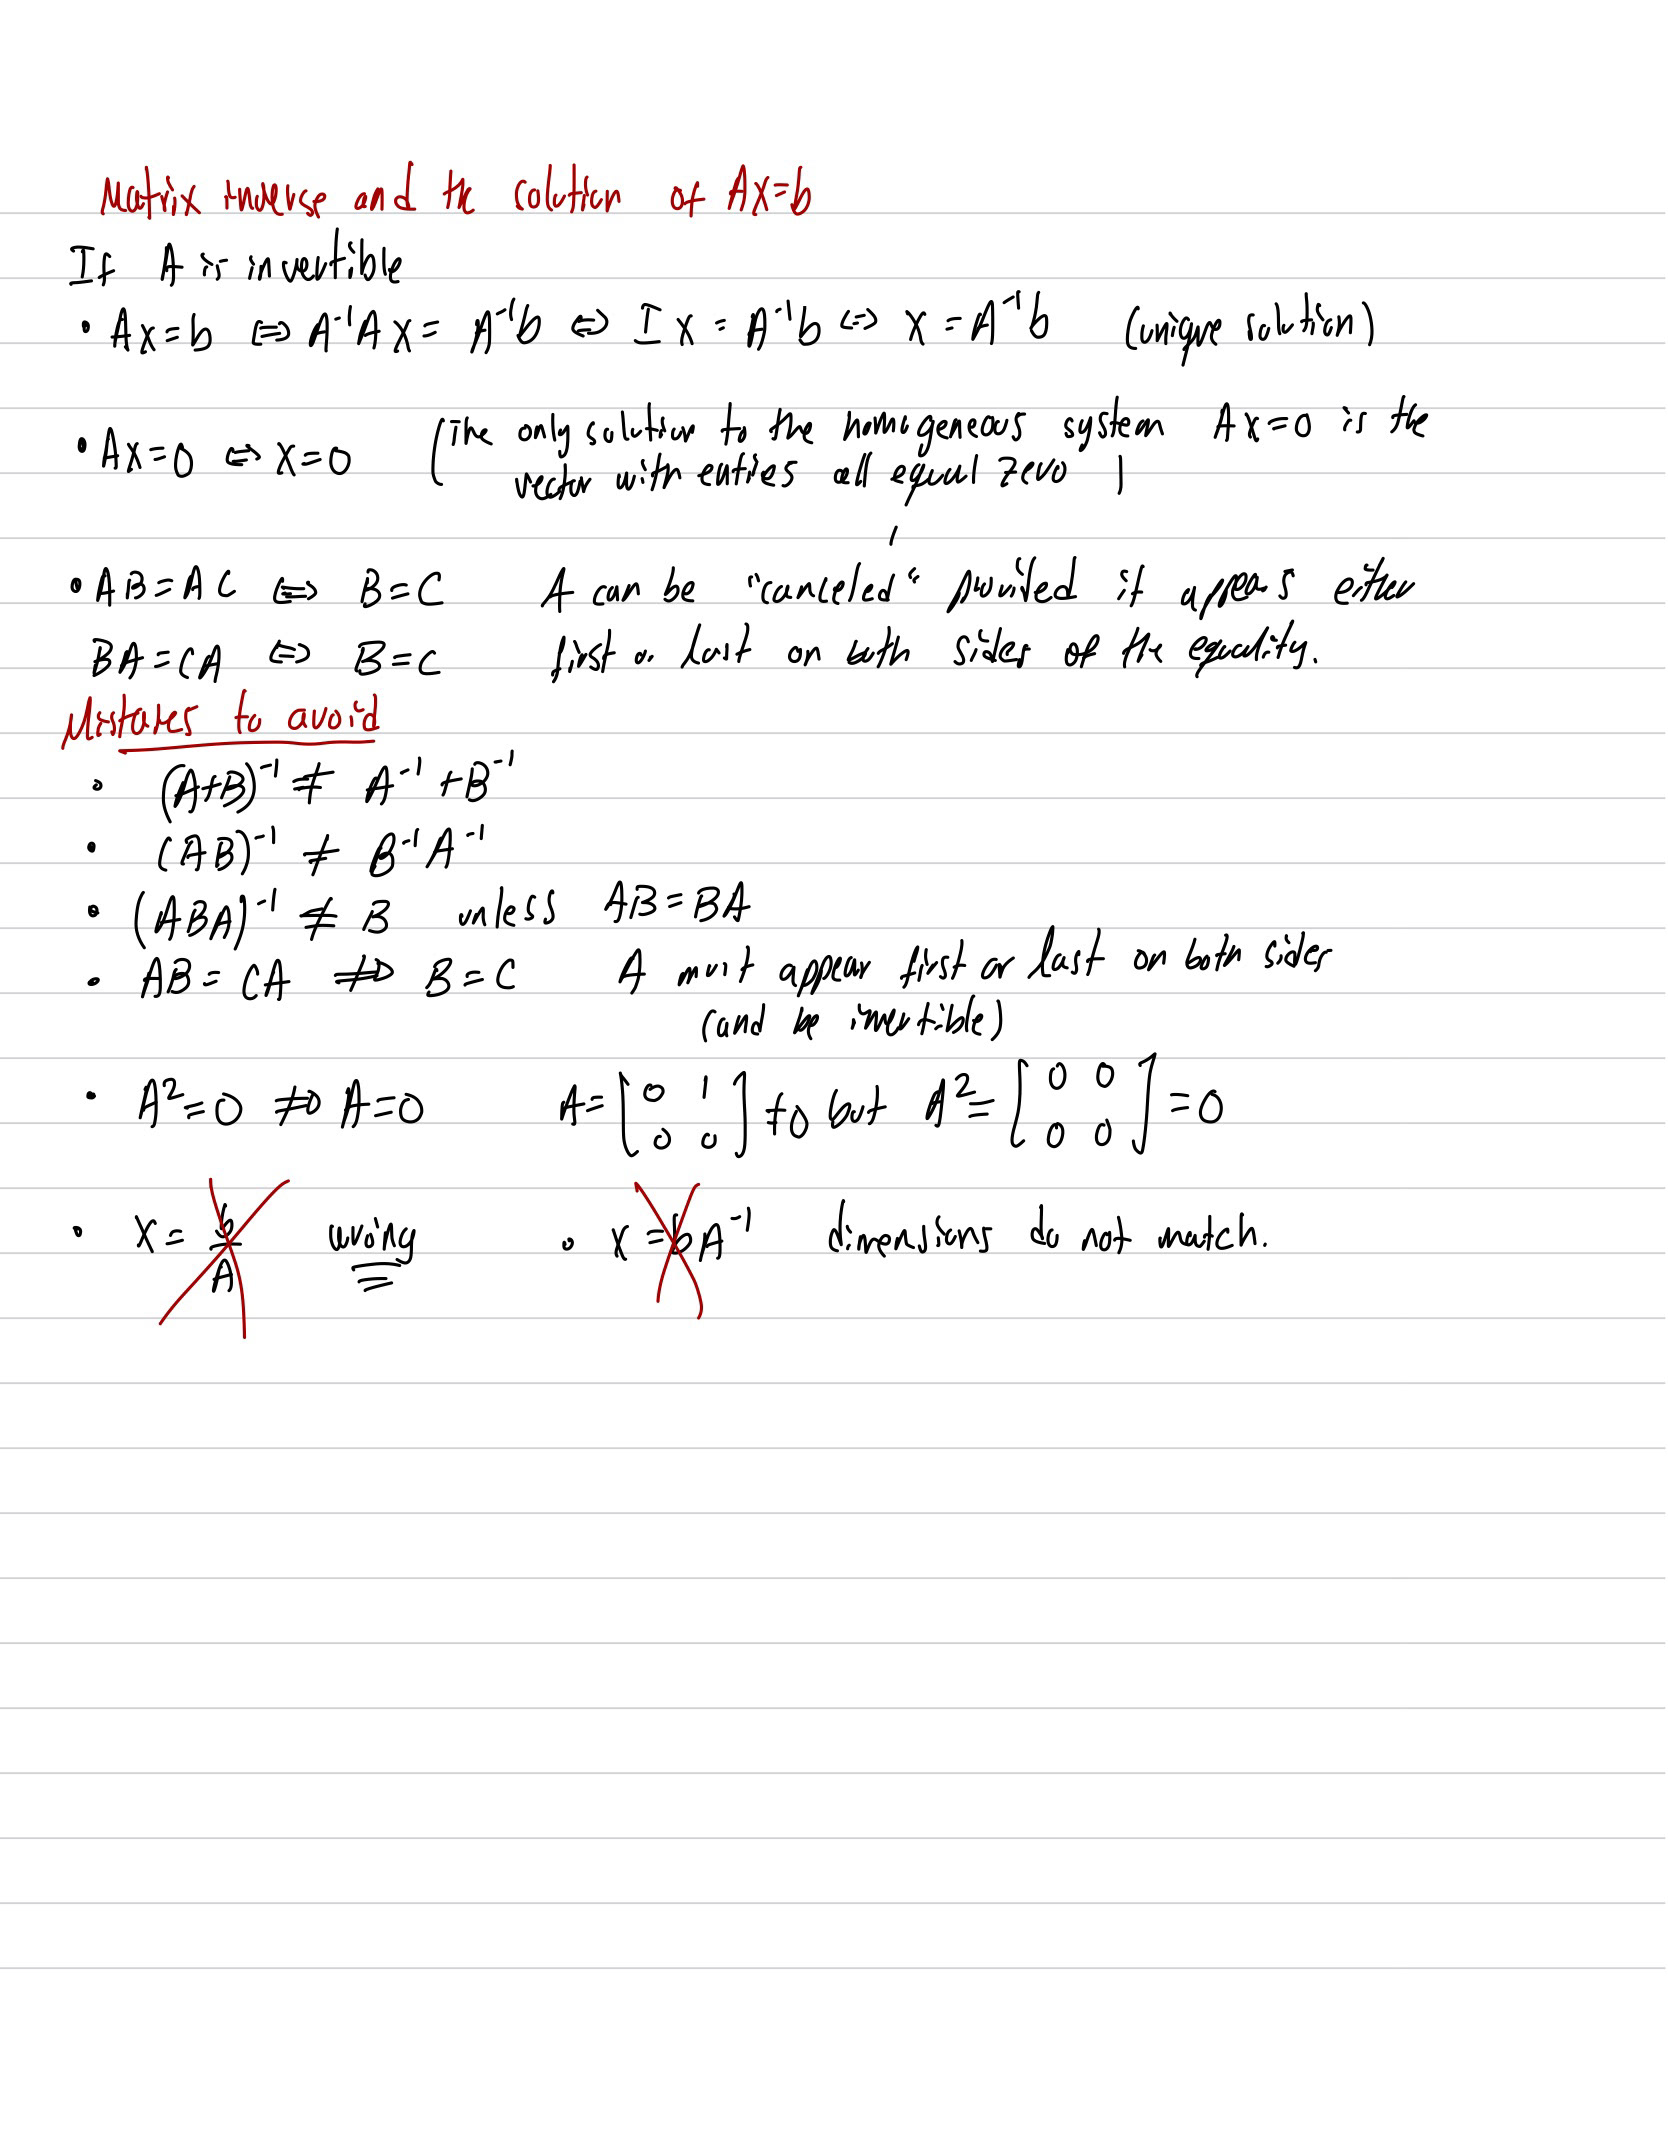 Matrix inverse and the solution of Ax=b
If A is invertible
• Ax=b ⇔ A⁻¹Ax = A⁻¹b ⇔ Ix = A⁻¹b ⇔ x = A⁻¹b (unique solution)
• Ax=0 ⇔ x=0 (The only solution to the homogeneous system Ax=0 is the
vector with enties all equal zero)
• AB=AC ⇔ B=C A can be "canceled" provided it appears either
BA=CA ⇔ B=C first or last on both sides of the equality.
Mistakes to avoid
• (A+B)⁻¹ ≠ A⁻¹ + B⁻¹
• (AB)⁻¹ ≠ B⁻¹A⁻¹
• (ABA)⁻¹ ≠ B unless AB=BA
• AB = CA ⇏ B=C A must appear first or last on both sides
(and be invertible)
• A²=0 ⇏ A=0 A=[0 1; 0 0] ≠0 but A²=[0 0; 0 0]=0
• x = b/A wrong • x = bA⁻¹ dimensions do not match.